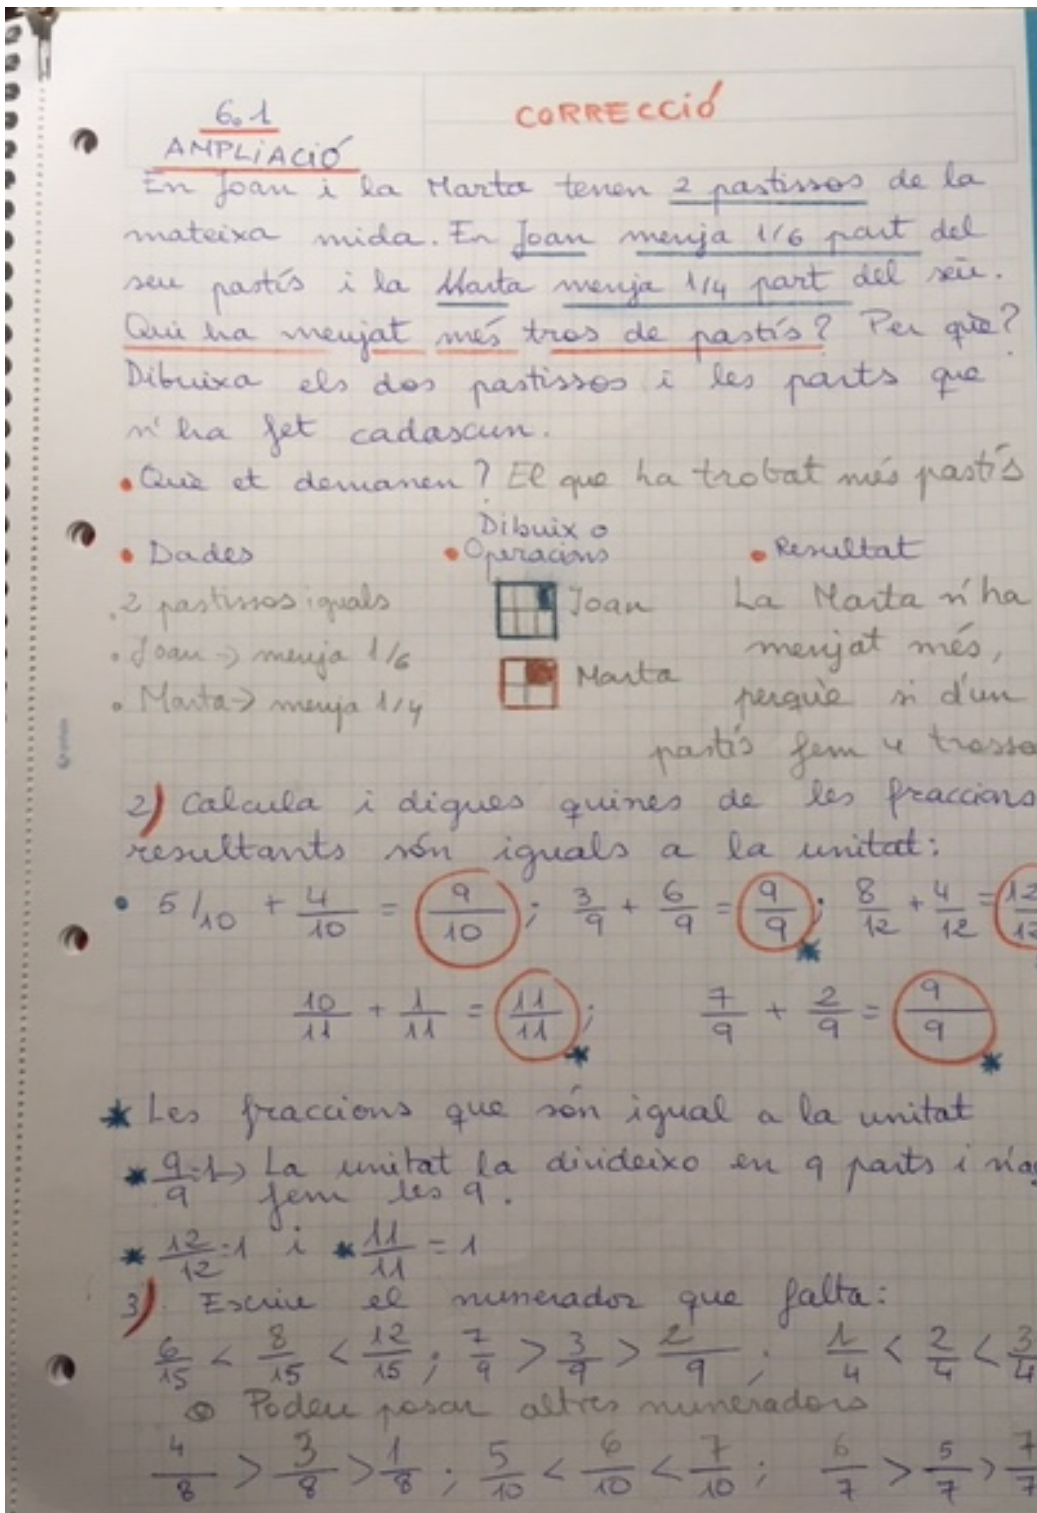 6.1
AMPLIACIÓ
CORRECCIÓ
En Joan i la Marta tenen 2 pastissos de la
mateixa mida. En Joan menja 1/6 part del
seu pastís i la Marta menja 1/4 part del seu.
Qui ha menjat més tros de pastís? Per què?
Dibuixa els dos pastissos i les parts que
n'ha fet cadascun.
• Què et demanen? El que ha trobat més pastís
• Dades
• Dibuix o
Operacions
• Resultat
. 2 pastissos iguals
• Joan -> menja 1/6
• Marta -> menja 1/4
Joan
Marta
La Marta n'ha
menjat més,
perquè si d'un
pastís fem 4 trosso
2) Calcula i digues quines de les fraccions
resultants són iguals a la unitat:
• 5/10 + 4/10 = 9/10 ; 3/9 + 6/9 = 9/9 ; 8/12 + 4/12 = 12/12
10/11 + 1/11 = 11/11 ; 7/9 + 2/9 = 9/9
* Les fraccions que són igual a la unitat
* 9/9 = 1 -> La unitat la divideixo en 9 parts i n'ag
fem les 9.
* 12/12 = 1 i * 11/11 = 1
3) Escriu el numerador que falta:
6/15 < 8/15 < 12/15 ; 7/9 > 3/9 > 2/9 ; 1/4 < 2/4 < 3/4
Podeu posar altres numeradors
4/8 > 3/8 > 1/8 ; 5/10 < 6/10 < 7/10 ; 6/7 > 5/7 > 7/7